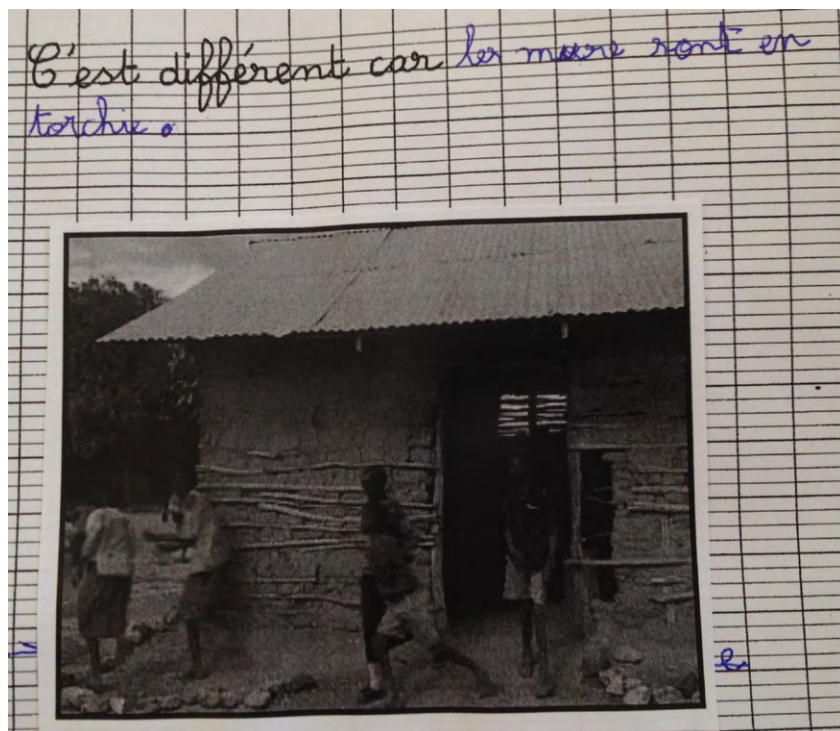 C'est différent car les murs sont en
torchis.